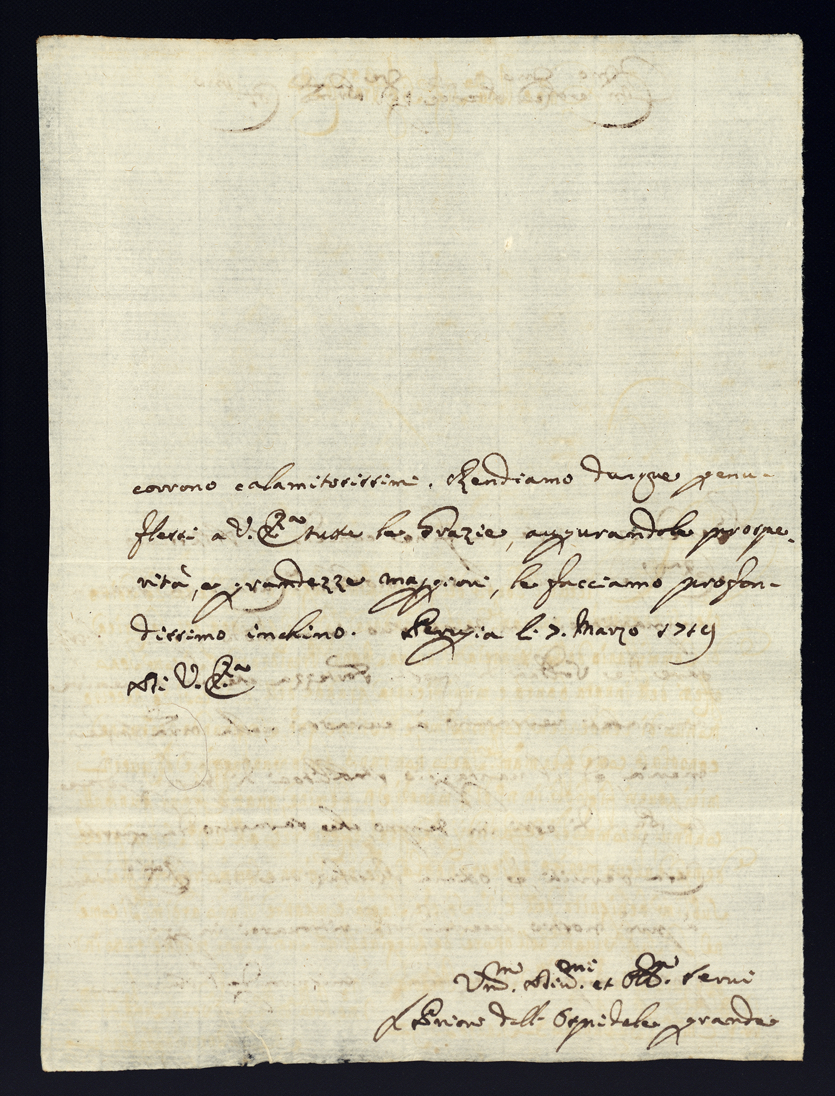 corrono calamitosissimi. Rendiamo dunque genu-
flessi a V. Em.za tutte le Grazie, augurandole prospe-
rità, e grandezze maggiori, le facciamo profon-
dissimo inchino. Perugia li 7. Marzo 1719
Di V. Em.za
Um.mi Div.mi et Obb.mi Servi
Priori dell' Ospidale grande